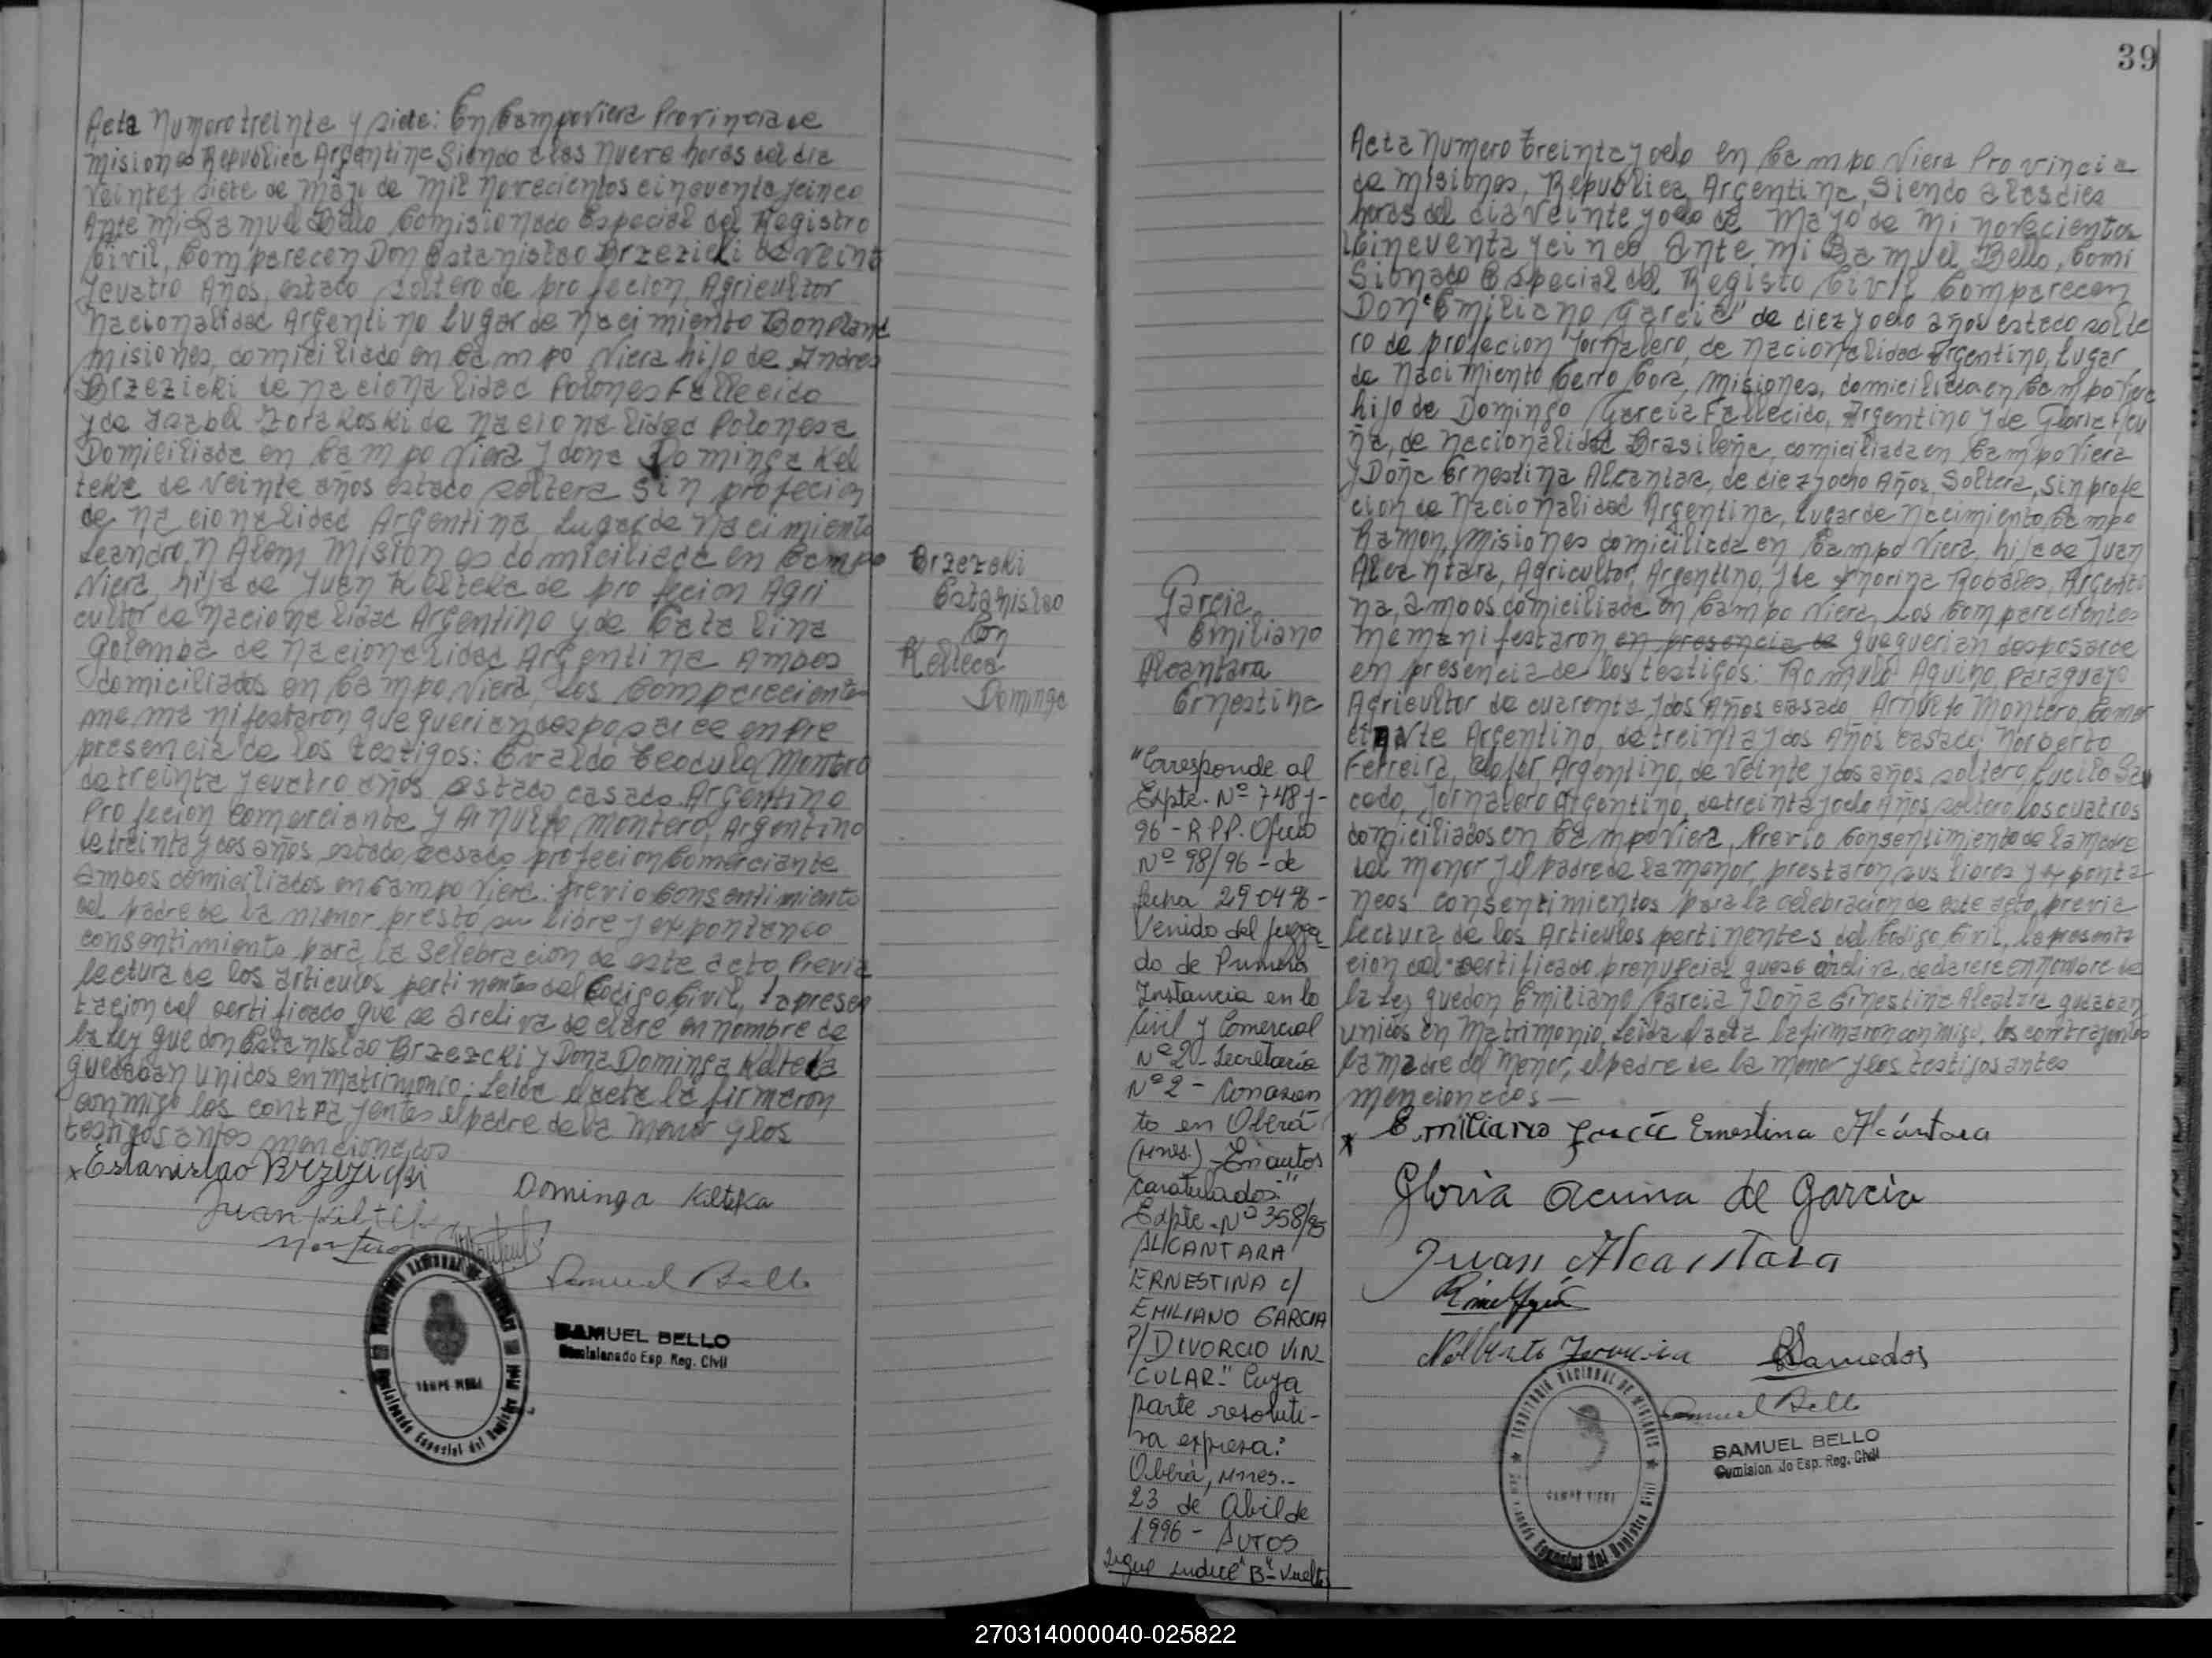 Acta Numero treinta y siete: En Campo Viera Provincia de
Misiones Republica Argentina Siendo a las nueve horas del dia
veinte y siete de Mayo de mil novecientos cincuenta y cinco
Ante mi Samuel Bello Comisionado Especial del Registro
Civil, Comparecen Don Estanislao Brzezicki de veint
y cuatro Años, estado soltero de profecion Agricultor
nacionalidad Argentino lugar de nacimiento Bonpland
misiones, domiciliado en Campo Viera hijo de Andres
Brzezicki de nacionalidad Polones Fallecido
y de Isabel Zorakoski de nacionalidad Polonesa
Domiciliada en Campo Viera y dona Dominga Kel
teka de veinte años estado soltera sin profecion
de nacionalidad Argentina, lugar de nacimiento
Leandro N Alem Misiones domiciliada en Campo
Viera, hija de Juan Kelteka de profecion Agri
cultor de nacionalidad Argentino y de Catalina
Golemba de nacionalidad Argentina Ambos
domiciliados en Campo Viera, los Comparecientes
me manifestaron que querian desposarce en pre
presencia de los testigos: Evaldo Teodulo Montero
de treinta y cuatro años estado casado Argentino
Profecion Comerciante y Arnulfo Montero, Argentino
de treinta y dos años, estado casado profecion Comerciante
Ambos domiciliados en Campo Viera: previo Consentimiento
del padre de la menor presto su libre y expontaneo
consentimiento para la selebracion de este acto, Previa
lectura de los articulos pertinentes del Codigo Civil, la presen
tacion del certificado que se archiva declare en nombre de
la Ley que don Estanislao Brzezcki y Dona Dominga Kelteka
quedaban unidos en matrimonio: Leida el acta la firmaron
conmigo los contrayentes el padre de la menor y los
testigos antes mencionados
x Estanislao Brzezicki
Dominga Kelteka
Juan Keltek
Montero
Samuel Bello
SAMUEL BELLO
Comisionado Esp. Reg. Civil
CAMPO VIERA
Comisionado Especial del Registro Civil
Brzezcki
Estanislao
Con
Kelteca
Dominga
39
Garcia
Emiliano
Alcantara
Ernestina
"Corresponde al
Expte. Nº 748 j-
96 - R.P.P. Oficio
Nº 98/96 - de
fecha 29 04 96 -
Venido del Juzga
do de Primera
Instancia en lo
Civil y Comercial
Nº 2 - Secretaria
Nº 2 - Con asien
to en Oberá
(Mnes.) - En autos
caratulados:"
Expte. Nº 358/95
ALCANTARA
ERNESTINA c/
EMILIANO GARCIA
P/ DIVORCIO VIN-
CULAR." Cuya
parte resoluti-
va expresa:
Oberá, Mnes.-
23 de Abril de
1996 - AUTOS
Sigue Indice "B" - Vuelta
Acta Numero treinta y ocho en Campo Viera Provincia
de misiones, Republica Argentina, Siendo a las diez
horas del dia veinte y ocho de Mayo de mi novecientos
Cincuenta y cinco Ante mi Samuel Bello, Comi
sionado Especial del Registo Civil Comparecen
Don "Emiliano Garcia" de diez y ocho años estado solte
ro de profecion Jornalero, de nacionalidad Argentino, lugar
de Nacimiento Cerro Cora, Misiones, domiciliado en Campo Viera
hijo de Domingo Garcia Fallecido, Argentino y de Gloria Acu
ña, de nacionalidad Brasileña, domiciliada en Campo Viera
y Doña Ernestina Alcantara, de diez y ocho Años, Soltera, sin profe
cion de Nacionalidad Argentina, lugar de nacimiento, Campo
Ramon, Misiones domiciliada en Campo Viera, hija de Juan
Alcantara, Agricultor, Argentino, y de Robales, Argenti
na, ambos domiciliado en Campo Viera, los Comparecientes
me manifestaron en presencia de que querian desposarce
en presencia de los testigos: Romulo Aquino, paraguayo
Agricultor de cuarenta y dos Años casado, Arnulfo Montero, Comer
ciante Argentino, de treinta y dos Años casado, Norberto
Ferreira, Chofer, Argentino, de veinte y dos años, soltero, Lucilo Sa
cedo, Jornalero Argentino, de treinta y ocho Años, soltero los cuatros
domiciliados en Campo Viera, Previo Consentimiento de la madre
del menor y el Padre de la menor, prestaron sus libres y exponta
neos consentimientos para la celebracion de este acto, previa
lectura de los Articulos pertinentes del Codigo Civil, la presenta
cion del certificado prenupcial que se archiva, declare en nombre de
la Ley quedon Emiliano Garcia y Doña Ernestina Alcatara quedaban
unidos en Matrimonio, Leida el acta la firmaron conmigo, los contrayentes
la madre del menor, el padre de la menor y los testigos antes
mencionados —
x Emiliano Garcia Ernestina Alcántara
Gloria Acuina de Garcia
Juan Alcantara
Nolberto Ferreira
Samuel Bello
SAMUEL BELLO
Comisionado Esp. Reg. Civil
TERRITORIO NACIONAL DE MISIONES
CAMPO VIERA
Comisionado Especial del Registro Civil
270314000040-025822